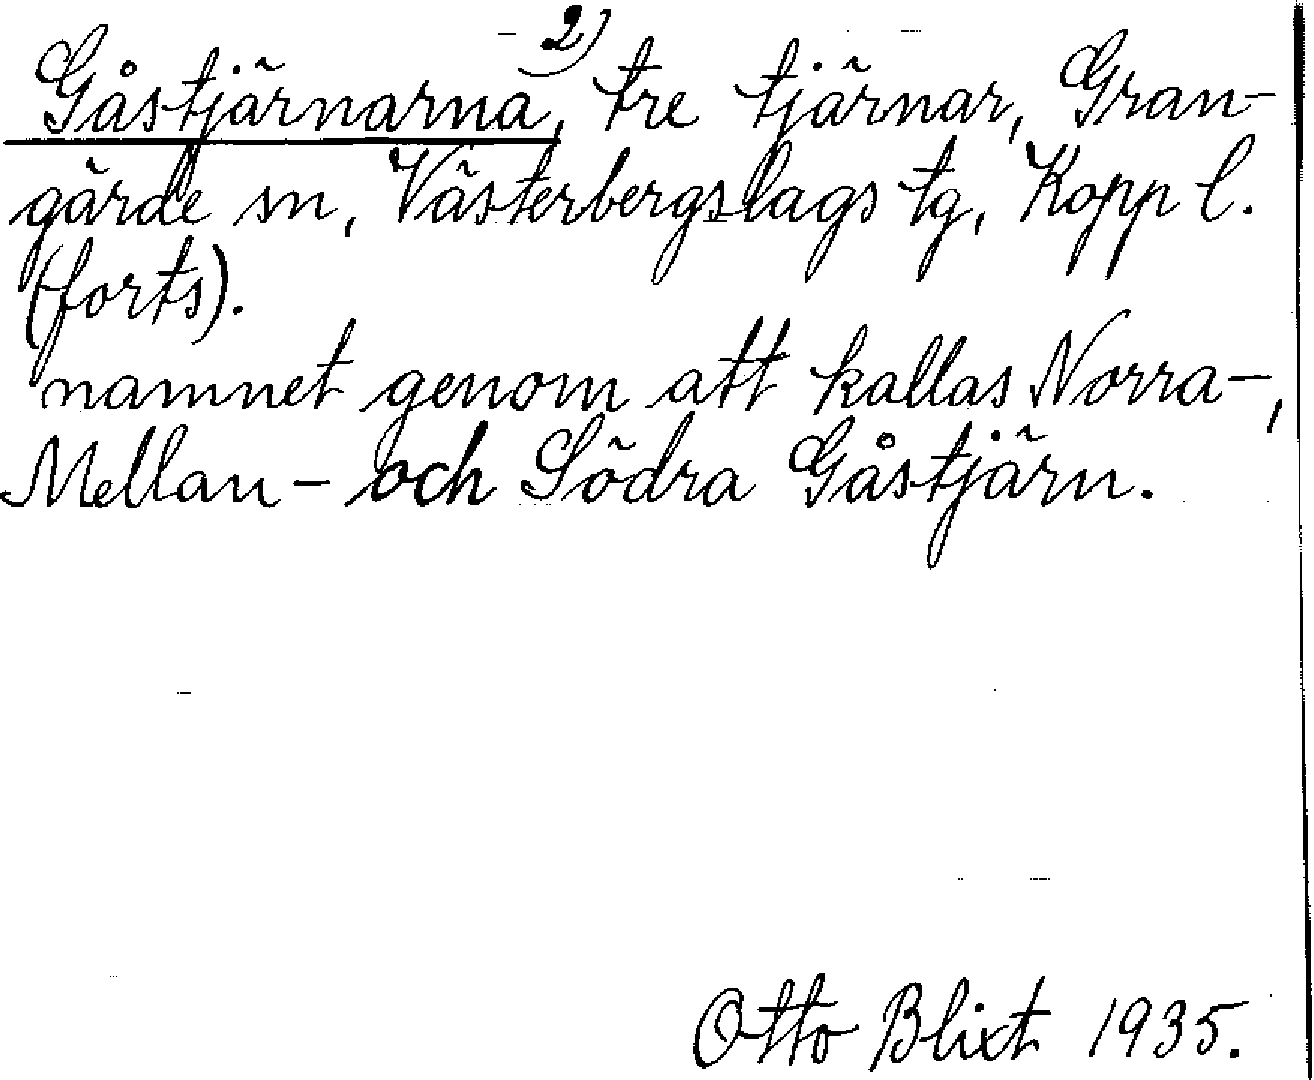 2)
Gåstjärnarna, tre tjärnar, Gran-
gärde sn, Västerbergslags tg, Kopp l.
(forts).
namnet genom att kallas Norra-,
Mellan- och Södra Gåstjärn.
Otto Blixt 1935.